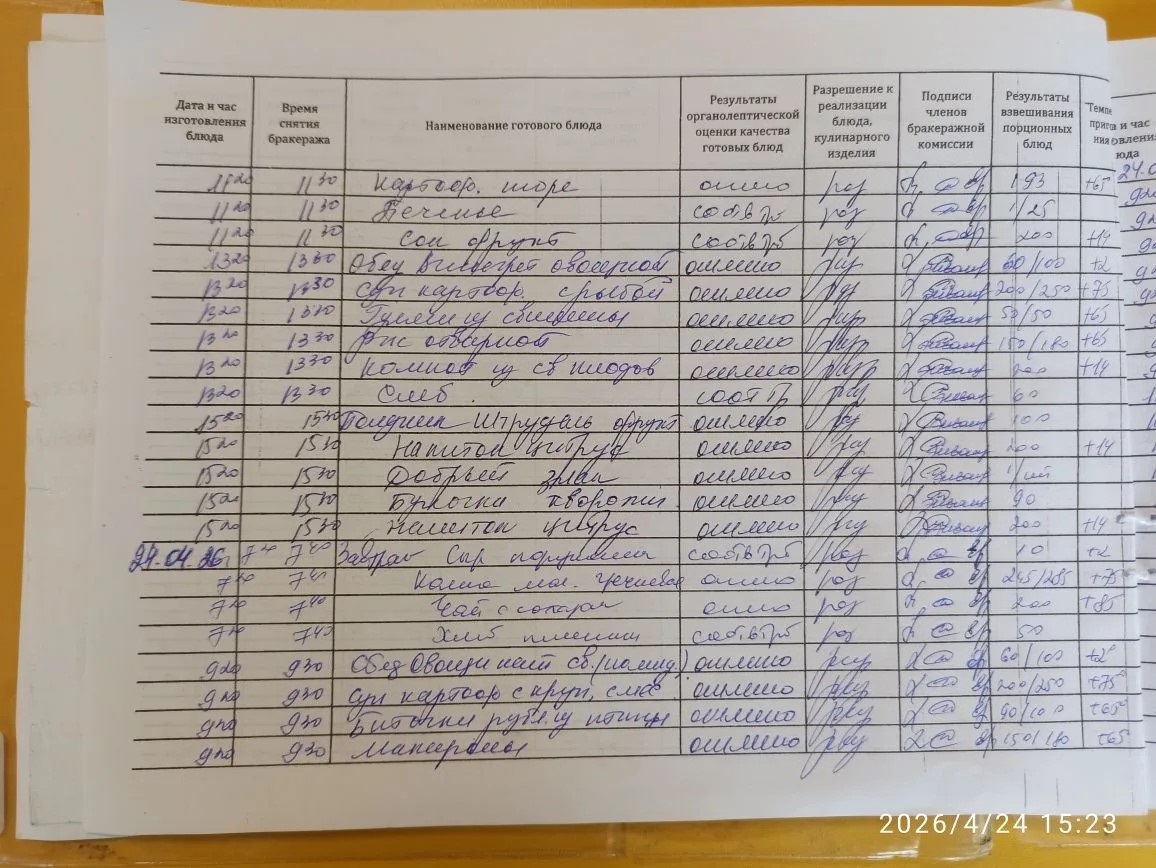 Дата и час изготовления блюда | Время снятия бракеража | Наименование готового блюда | Результаты органолептической оценки качества готовых блюд | Разрешение к реализации блюда, кулинарного изделия | Подписи членов бракеражной комиссии | Результаты взвешивания порционных блюд | Темпе
11 20 11 30 Картоф. пюре отлично раз 193 +65
11 20 11 30 Печенье соотв тр раз 1/25
11 20 11 30 Сок фрукт соотв тр раз 200 +14
13 20 13 30 Обед Винегрет овощной отлично раз 60/100 +2
13 20 13 30 Суп картоф. с рыбой отлично раз 200/250 +75
13 20 13 30 Гуляш из свинины отлично раз 50/50 +65
13 20 13 30 Рис отварной отлично раз 150/180 +65
13 20 13 30 Компот из св плодов отлично раз 200 +14
13 20 13 30 Хлеб соот тр раз 60
15 20 15 30 Полдник Штрудель фрукт отлично раз 100
15 20 15 30 Напиток цитрус отлично раз 200 +14
15 20 15 30 Добрый злак отлично раз 1/шт
15 20 15 30 Булочка творожн. отлично раз 90
15 20 15 30 Напиток цитрус отлично раз 200 +14
24.04.26г 7 40 Завтрак Сыр порциями соотв тр раз 10 +2
7 40 Каша мол. гречневая отлично раз 245/285 +75
7 40 Чай с сахаром отлично раз 200 +85
7 40 Хлеб пшенич соотв тр раз 50
9 20 9 30 Обед Овощи нат св. (помид.) отлично раз 60/100 +2°
9 20 9 30 Суп картоф с круп, отлично раз 200/250 +75
9 20 9 30 Биточки рубл из птицы отлично раз 90/100 +65
9 20 9 30 Макароны отлично раз 150/180 +65
2026/4/24 15:23